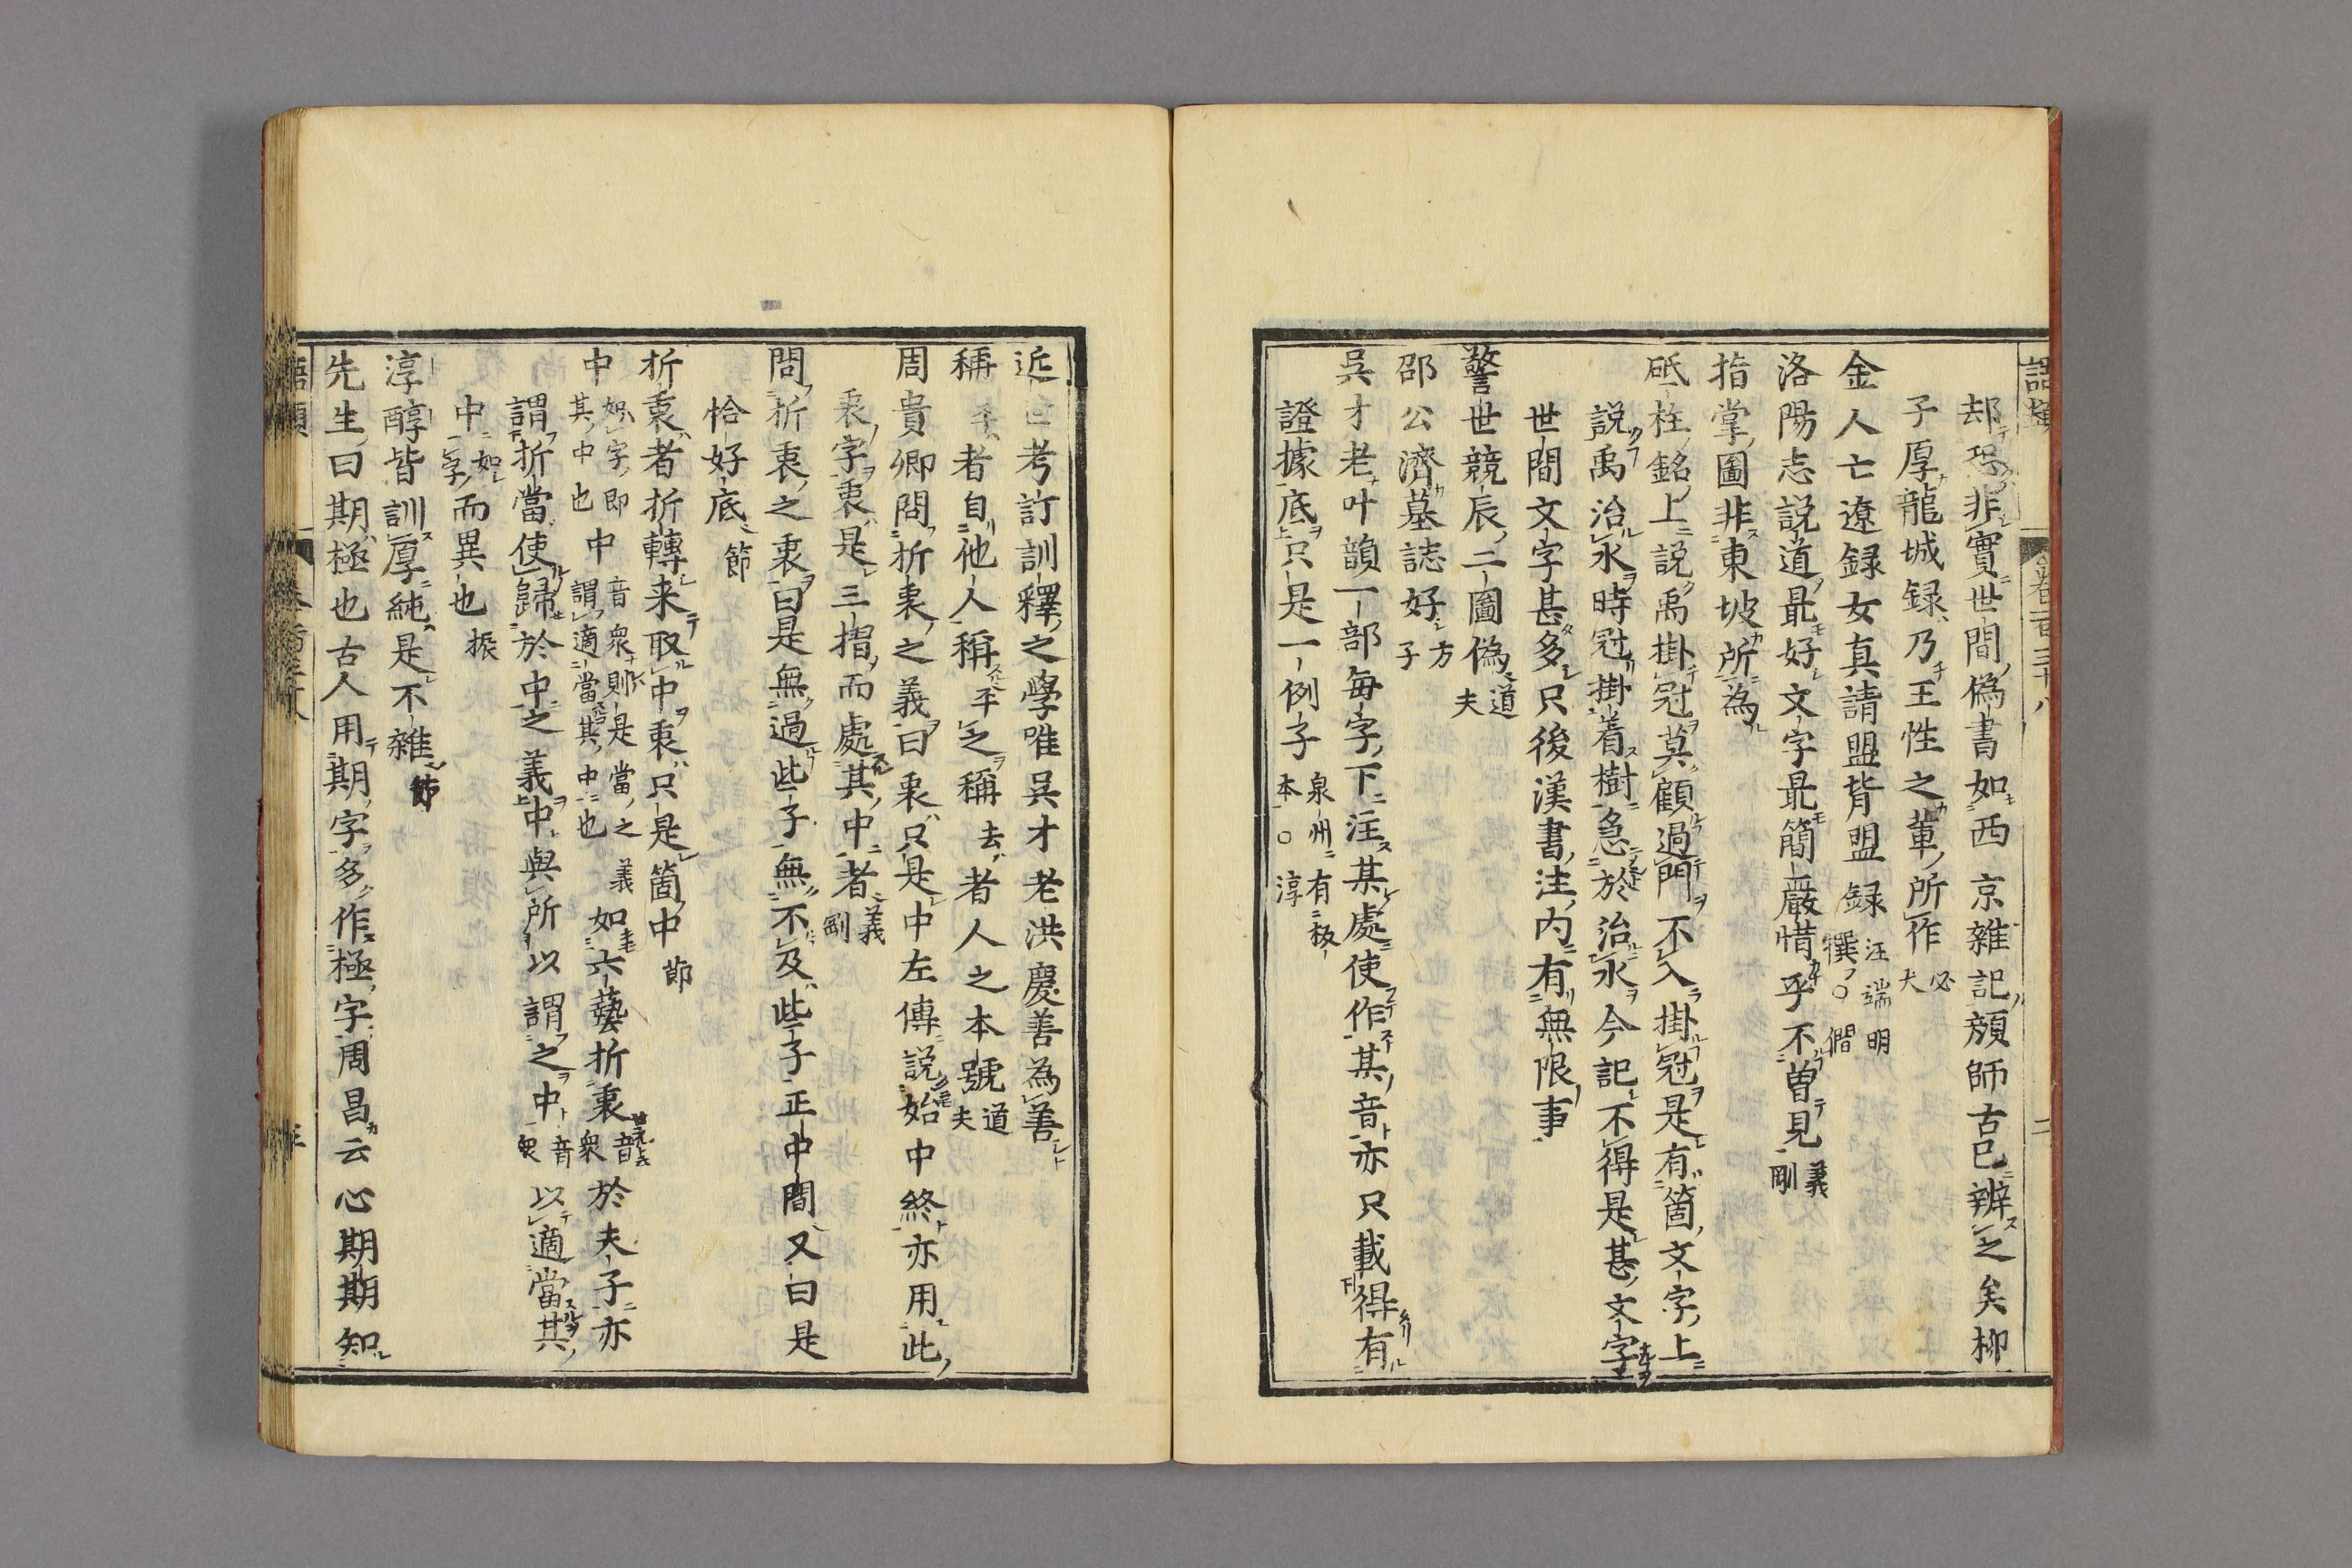 語類
卷百三十八
二
却恐非實世間偽書如西京雜記顔師古已辨之矣柳
子厚龍城録乃王性之輩所作必夫
金人亡遼録女真請盟背盟録汪端明撰○僩
洛陽志説道最好文字最簡嚴惜乎不曽見義剛
指掌圖非東坡所為
砥柱銘上説禹掛冠莫顧過門不入掛冠是有箇文字上
説禹治水時冠掛着樹急於治水今記不得是甚文字
世間文字甚多只後漢書注内有無限事
警世競辰二圖偽道夫
邵公濟墓誌好方子
吳才老叶韻一部每字下注某處使作某音亦只載得有
證據底只是一例子泉州有板本○淳
近世考訂訓釋之學唯吳才老洪慶善為善
稱平者自他人稱平之稱去者人之本號道夫
周貴卿問折衷之義曰衷只是中左傳説始中終亦用此
衷字衷是三摺而處其中者義剛
問折衷之衷曰是無過些子無不及些子正中間又曰是
恰好底節
折衷者折轉来取中衷只是箇中節
中如字即其中也中音衆則是當之義謂適當其中也如六藝折衷音衆於夫子亦
謂折當使歸於中之義中與所以謂之中音衆以適當其
中如字而異也振
淳醇皆訓厚純是不雜節
先生曰期極也古人用期字多作極字周昌云心期期知
語類